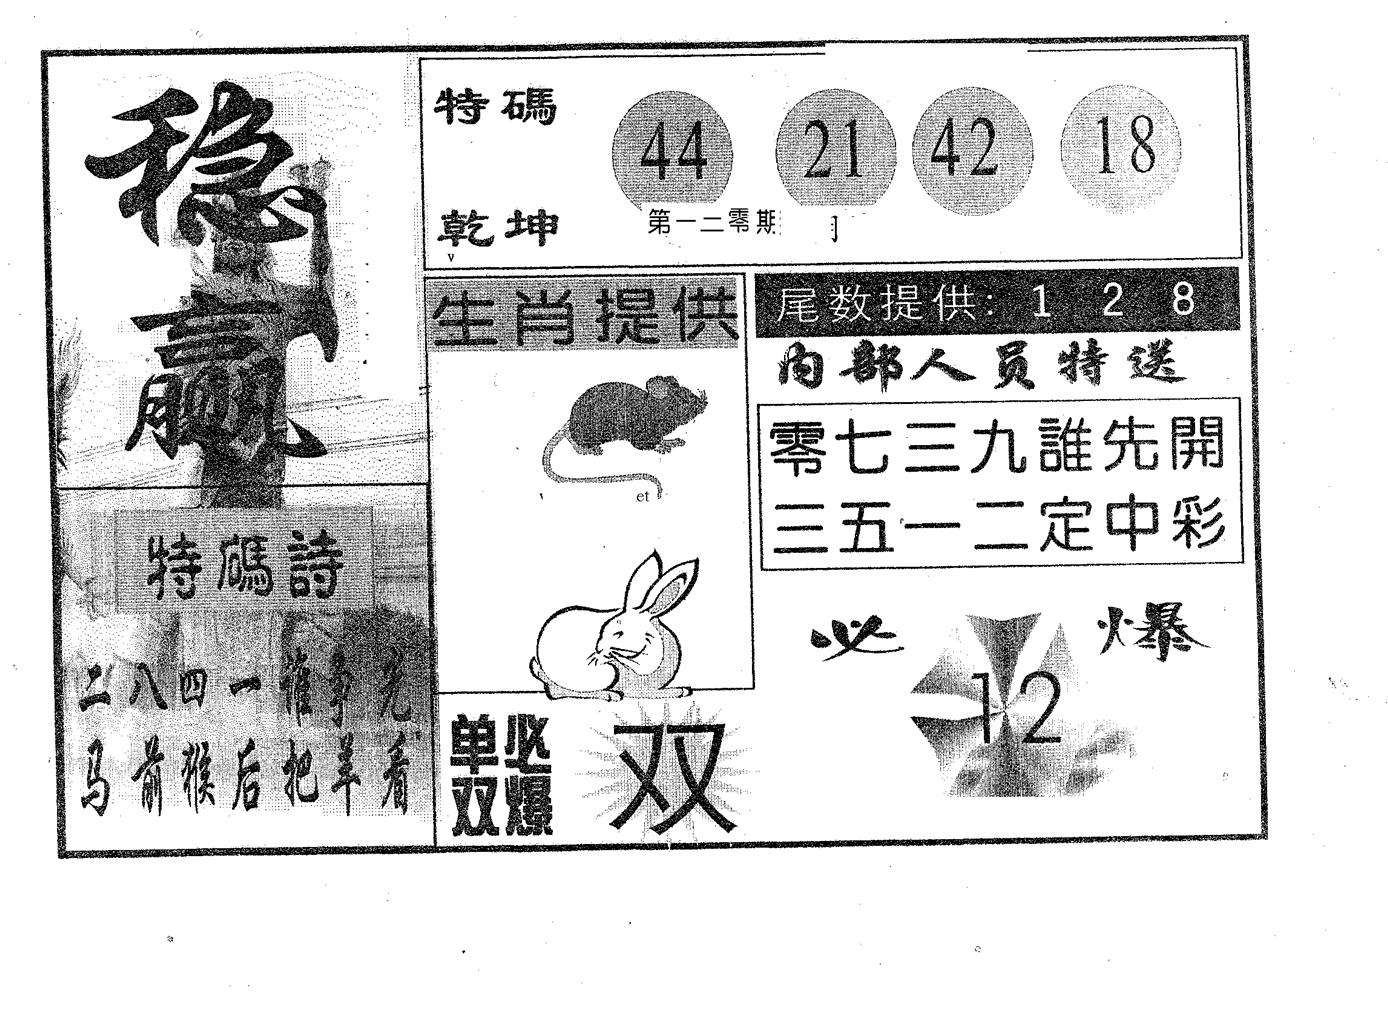 稳
赢
特碼
44 21 42 18
第一二零期
乾坤
生肖提供
et
尾数提供: 1 2 8
内部人员特送
零七三九誰先開
三五一二定中彩
特碼詩
二八四一誰争先
马前猴后把羊看
必爆
12
单双
必爆
双